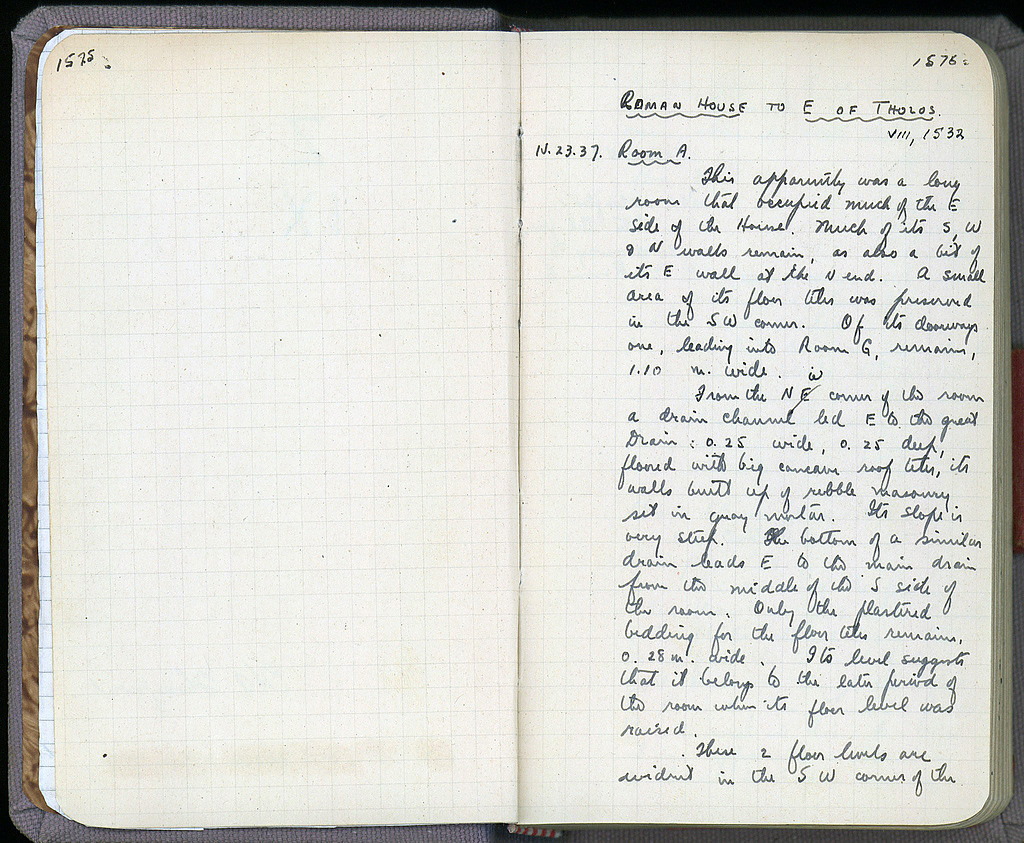 1575.
1576.
ROMAN HOUSE TO E OF THOLOS.
VIII, 1532
IV.23.37. Room A.
This apparently was a long
room that occupied much of the E
side of the House. Much of its S, W
& N walls remain, as also a bit of
its E wall at the N end. A small
area of its floor tiles was preserved
in the SW corner. Of its doorways
one, leading into Room G, remains,
1.10 m. wide.
W
From the NE corner of the room
a drain channel led E to the great
Drain : 0.25 wide, 0.25 deep,
floored with big concave roof tiles, its
walls built up of rubble masonry
set in gray mortar. Its slope is
very steep. The bottom of a similar
drain leads E to the main drain
from the middle of the S side of
the room. Only the plastered
bedding for the floor tiles remains,
0.28 m. wide. Its level suggests
that it belongs to the later period of
the room when its floor level was
raised.
These 2 floor levels are
evident in the SW corner of the